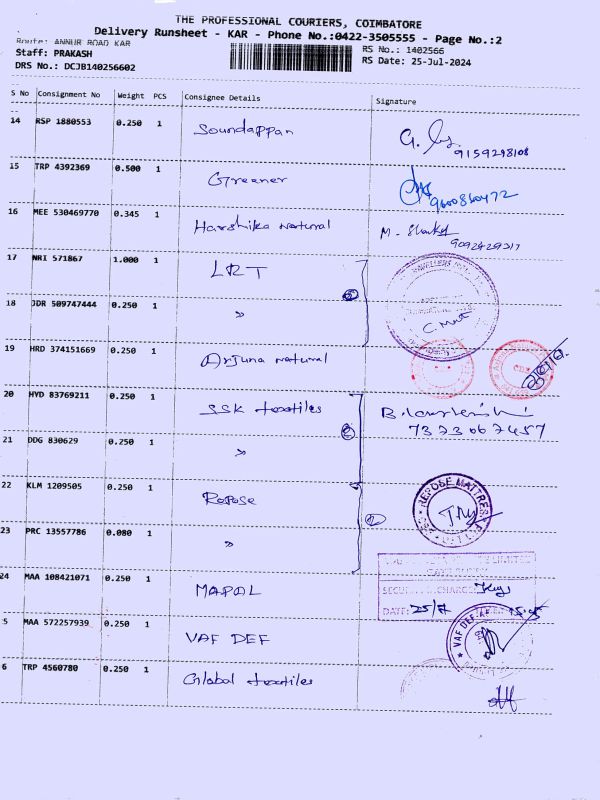 THE PROFESSIONAL COURIERS, COIMBATORE
Delivery Runsheet - KAR - Phone No.:0422-3505555 - Page No.:2
Route: ANNUR ROAD KAR
Staff: PRAKASH
RS No.: 1402566
DRS No.: DCJB140256602
RS Date: 25-Jul-2024
S No Consignment No Weight PCS Consignee Details Signature
14 RSP 1880553 0.250 1 Soundappan
9159298108
15 TRP 4392369 0.500 1 Greener
16 MEE 530469770 0.345 1 Harshika natural
17 NRI 571867 1.000 1 LRT
18 JDR 509747444 0.250 1 "
19 HRD 374151669 0.250 1 Arjuna natural
20 HYD 83769211 0.250 1 SSK textiles
7373067457
21 DDG 830629 0.250 1 "
22 KLM 1209505 0.250 1 Repose
REPOSE MATTRESS
23 PRC 13557786 0.080 1 "
24 MAA 108421071 0.250 1 MAPOL
DATE: 25/7
5 MAA 572257939 0.250 1 VAF DEF
VAF DEF
6 TRP 4560780 0.250 1 Global textiles